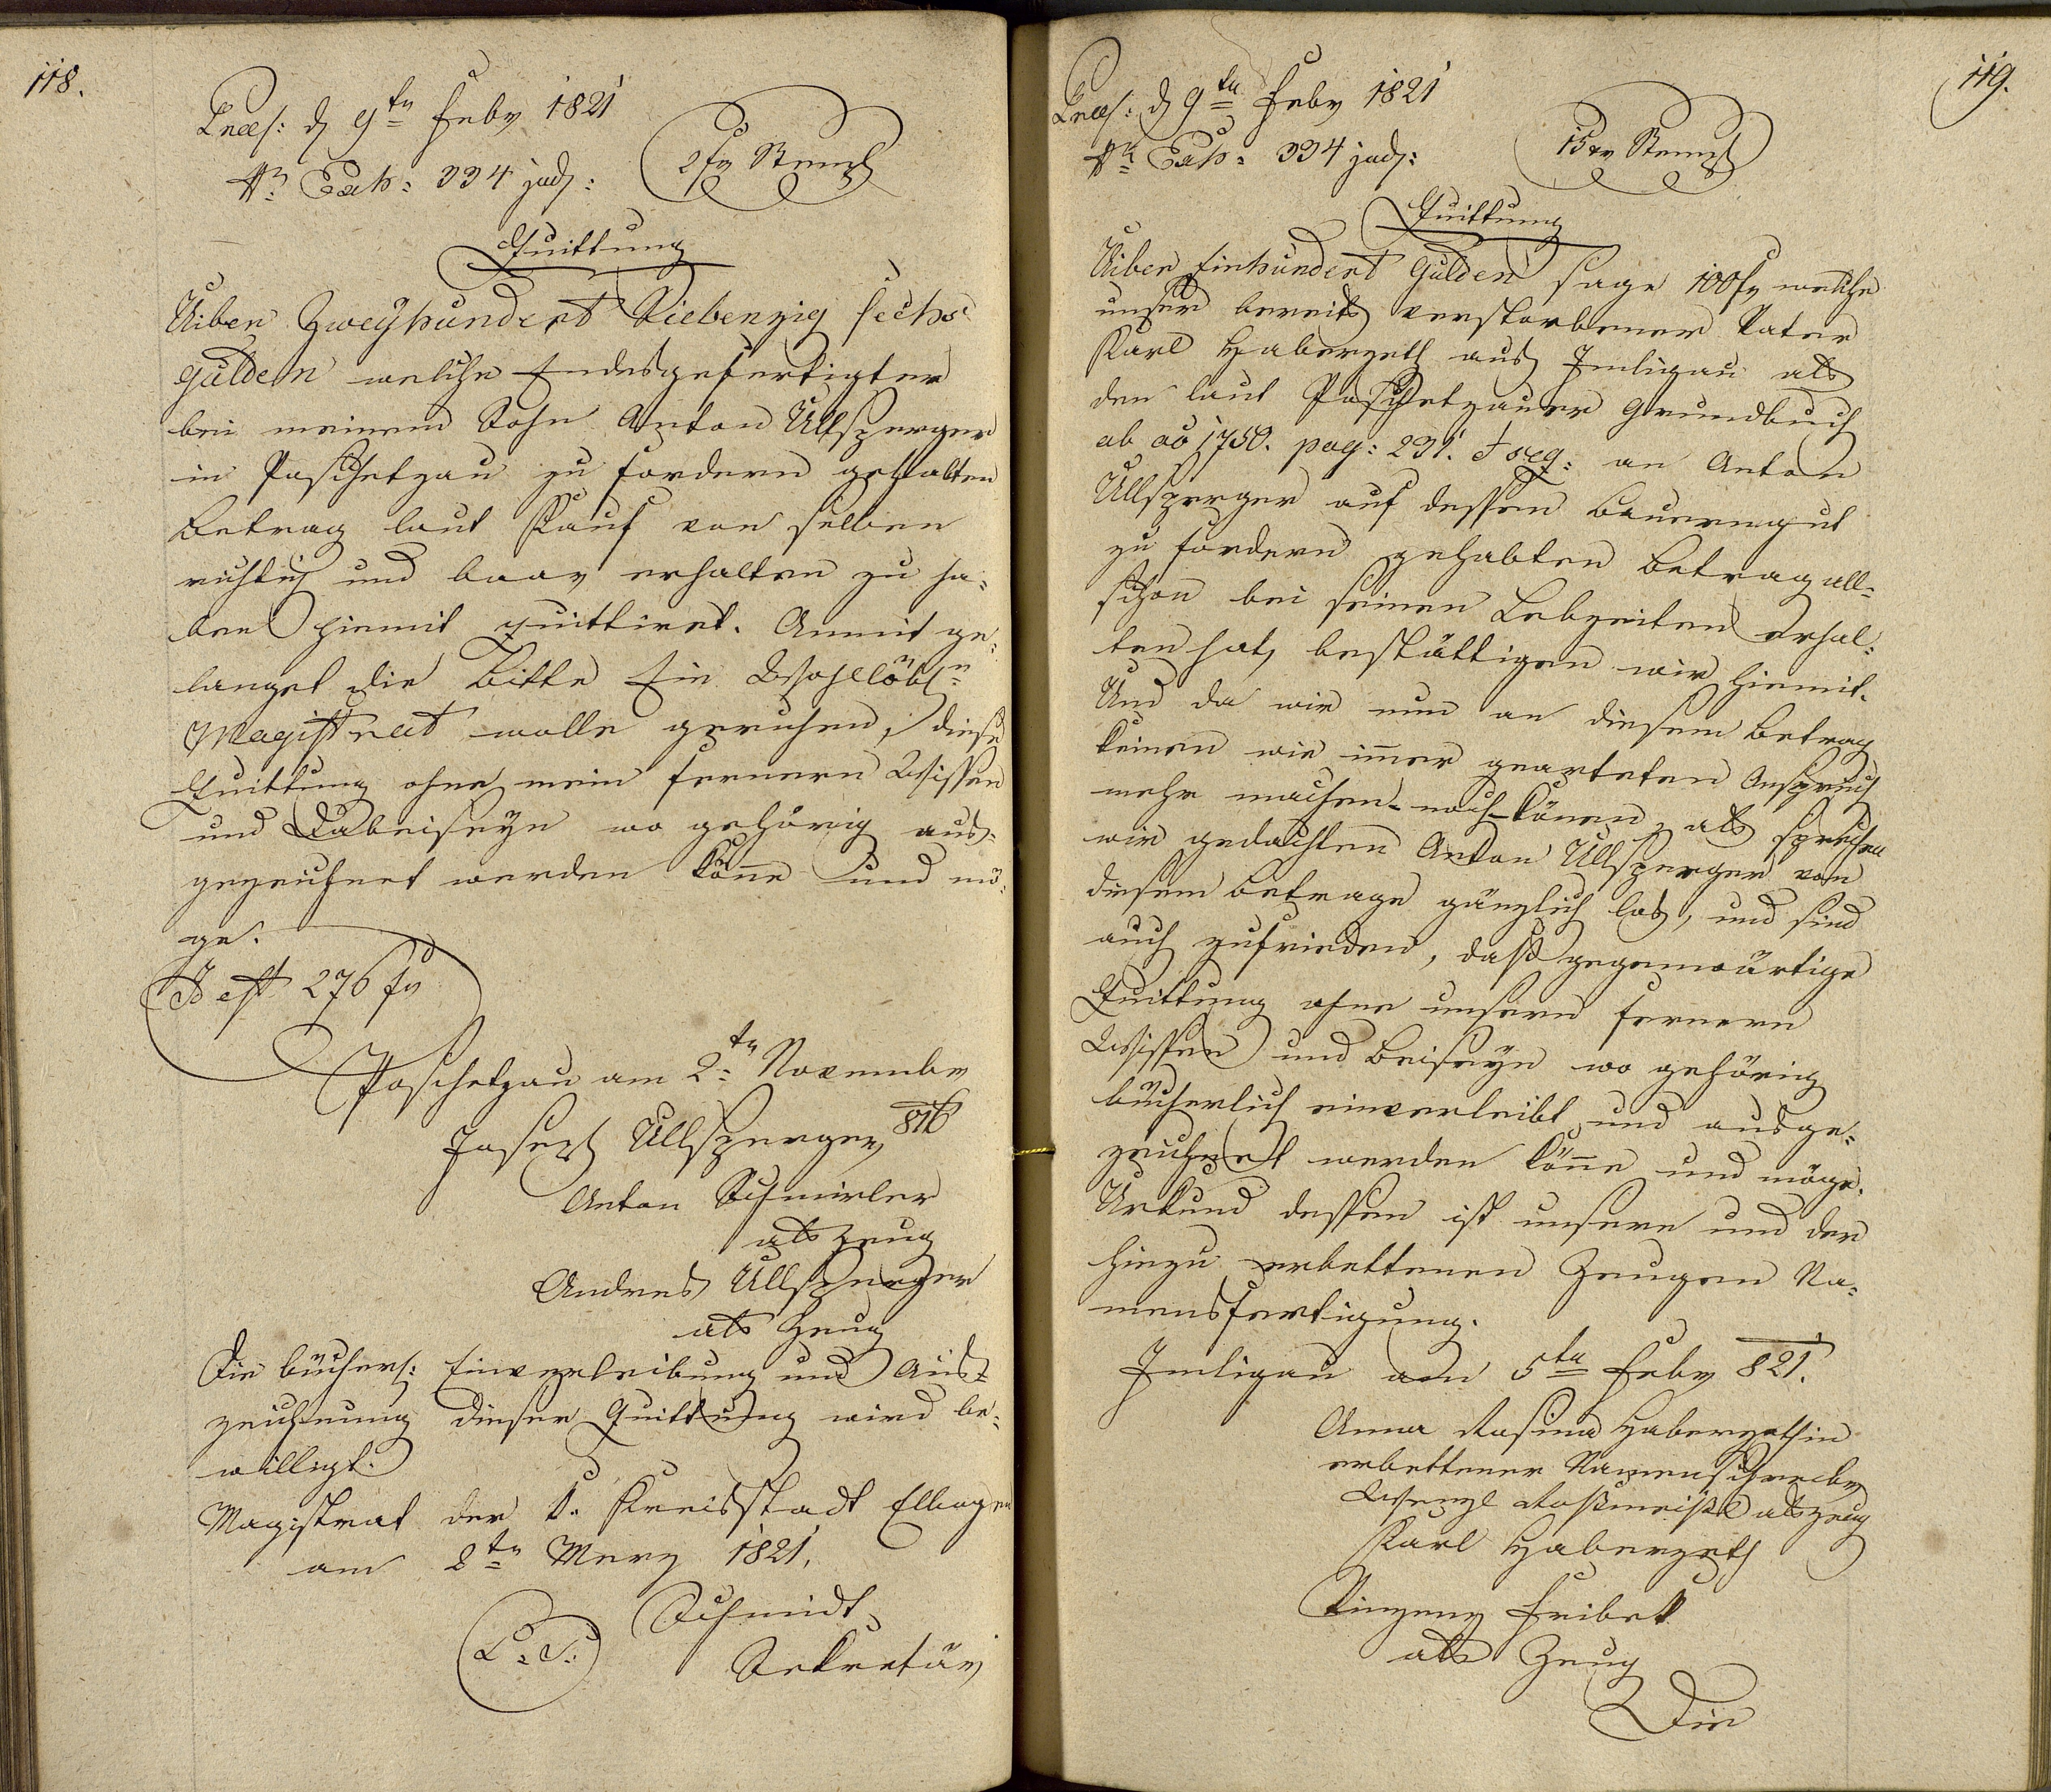 118.
Præs: d 9ten Febr 1821
Nr Exh: 334 jud:
2 fr Stempl
Quittung
Uiber Zweyhundert Siebenzig sechs
Gulden welche Endesgefertigter
bei meinem Sohn Anton Ullsperger
in Poschetzau zu fordern gehabten
Betrag laut Kauf von selben
richtig und baar erhalten zu ha-
ben hiemit quittiret. Anmit ge-
langet die Bitte Ein Wohllöbln
Magistrat wolle geruhen, diese
Quittung ohne mein fernern Wissen
und Dabeiseyn wo gehörig aus-
gezeichnet werden könne und mö-
ge.
Id est 276 fr
Poschetzau am 2ten Novembr
816
Joseph Ullsperger
Anton Schmirler
als Zeug
Andres Ullsperger
als Zeug
Die bücherl: Einverleibung und Aus-
zeichnung dieser Quittung wird be-
willigt.
Magistrat der k. Kreisstadt Elbogen
am 2ten Merz 1821.
L. S.
Schmidt
Sekretär
119.
Præs: d 9ten Febr 1821
Nr Exh: 334 jud:
15 xr Stempl
Quittung
Uiber Einhundert Gulden sage 100 fr welche
unser bereits verstorbener Vater
Karl Haberzeth aus Imligau als
den laut Poschetzauer Grundbuch
ab ao 1750. pag: 231. & seq: an Anton
Ullsperger auf dessen Bauerngut
zu fordern gehabten Betrag all-
schon bei seinen Lebzeiten erhal-
ten hat, bestättigen wir hiemit.
Und da wir nun an diesem Betrag
keinen wie immer gearteten Anspruch
mehr machen noch können, als sprechen
wir gedachten Anton Ullsperger von
diesem Betrage gänzlich los, und sind
auch zufrieden, daß gegenwärtige
Quittung ohne unsern fernern
Wissen und Beiseyn wo gehörig
bücherlich einverleibt und ausge-
zeichnet werden könne und möge.
Urkund dessen ist unsere und der
hiezu erbettenen Zeugen Na-
mensfertigung.
Imligau am 5ten Febr 821.
Anna Rosina Haberzethin
erbettener Namenschreiber
Wenzl Roßmeißl als Zeug
Karl Haberzeth
Vinzenz
als Zeug
Die